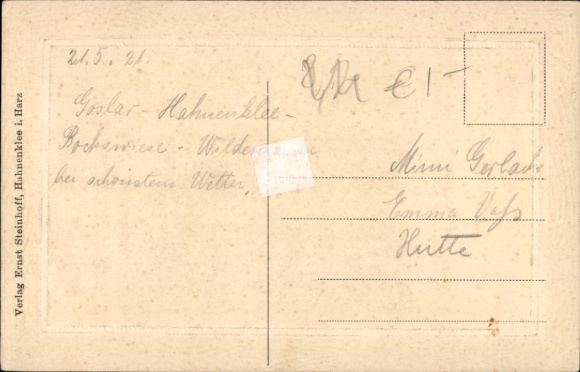 21. 5. 21.
Goslar - Hahnenklee -
Bockswiese - Wildemann
bei schönstem Wetter,
€ 1 -
Mimi Gerlach
Emma Voß
Hütte
Verlag Ernst Steinhoff, Hahnenklee i. Harz